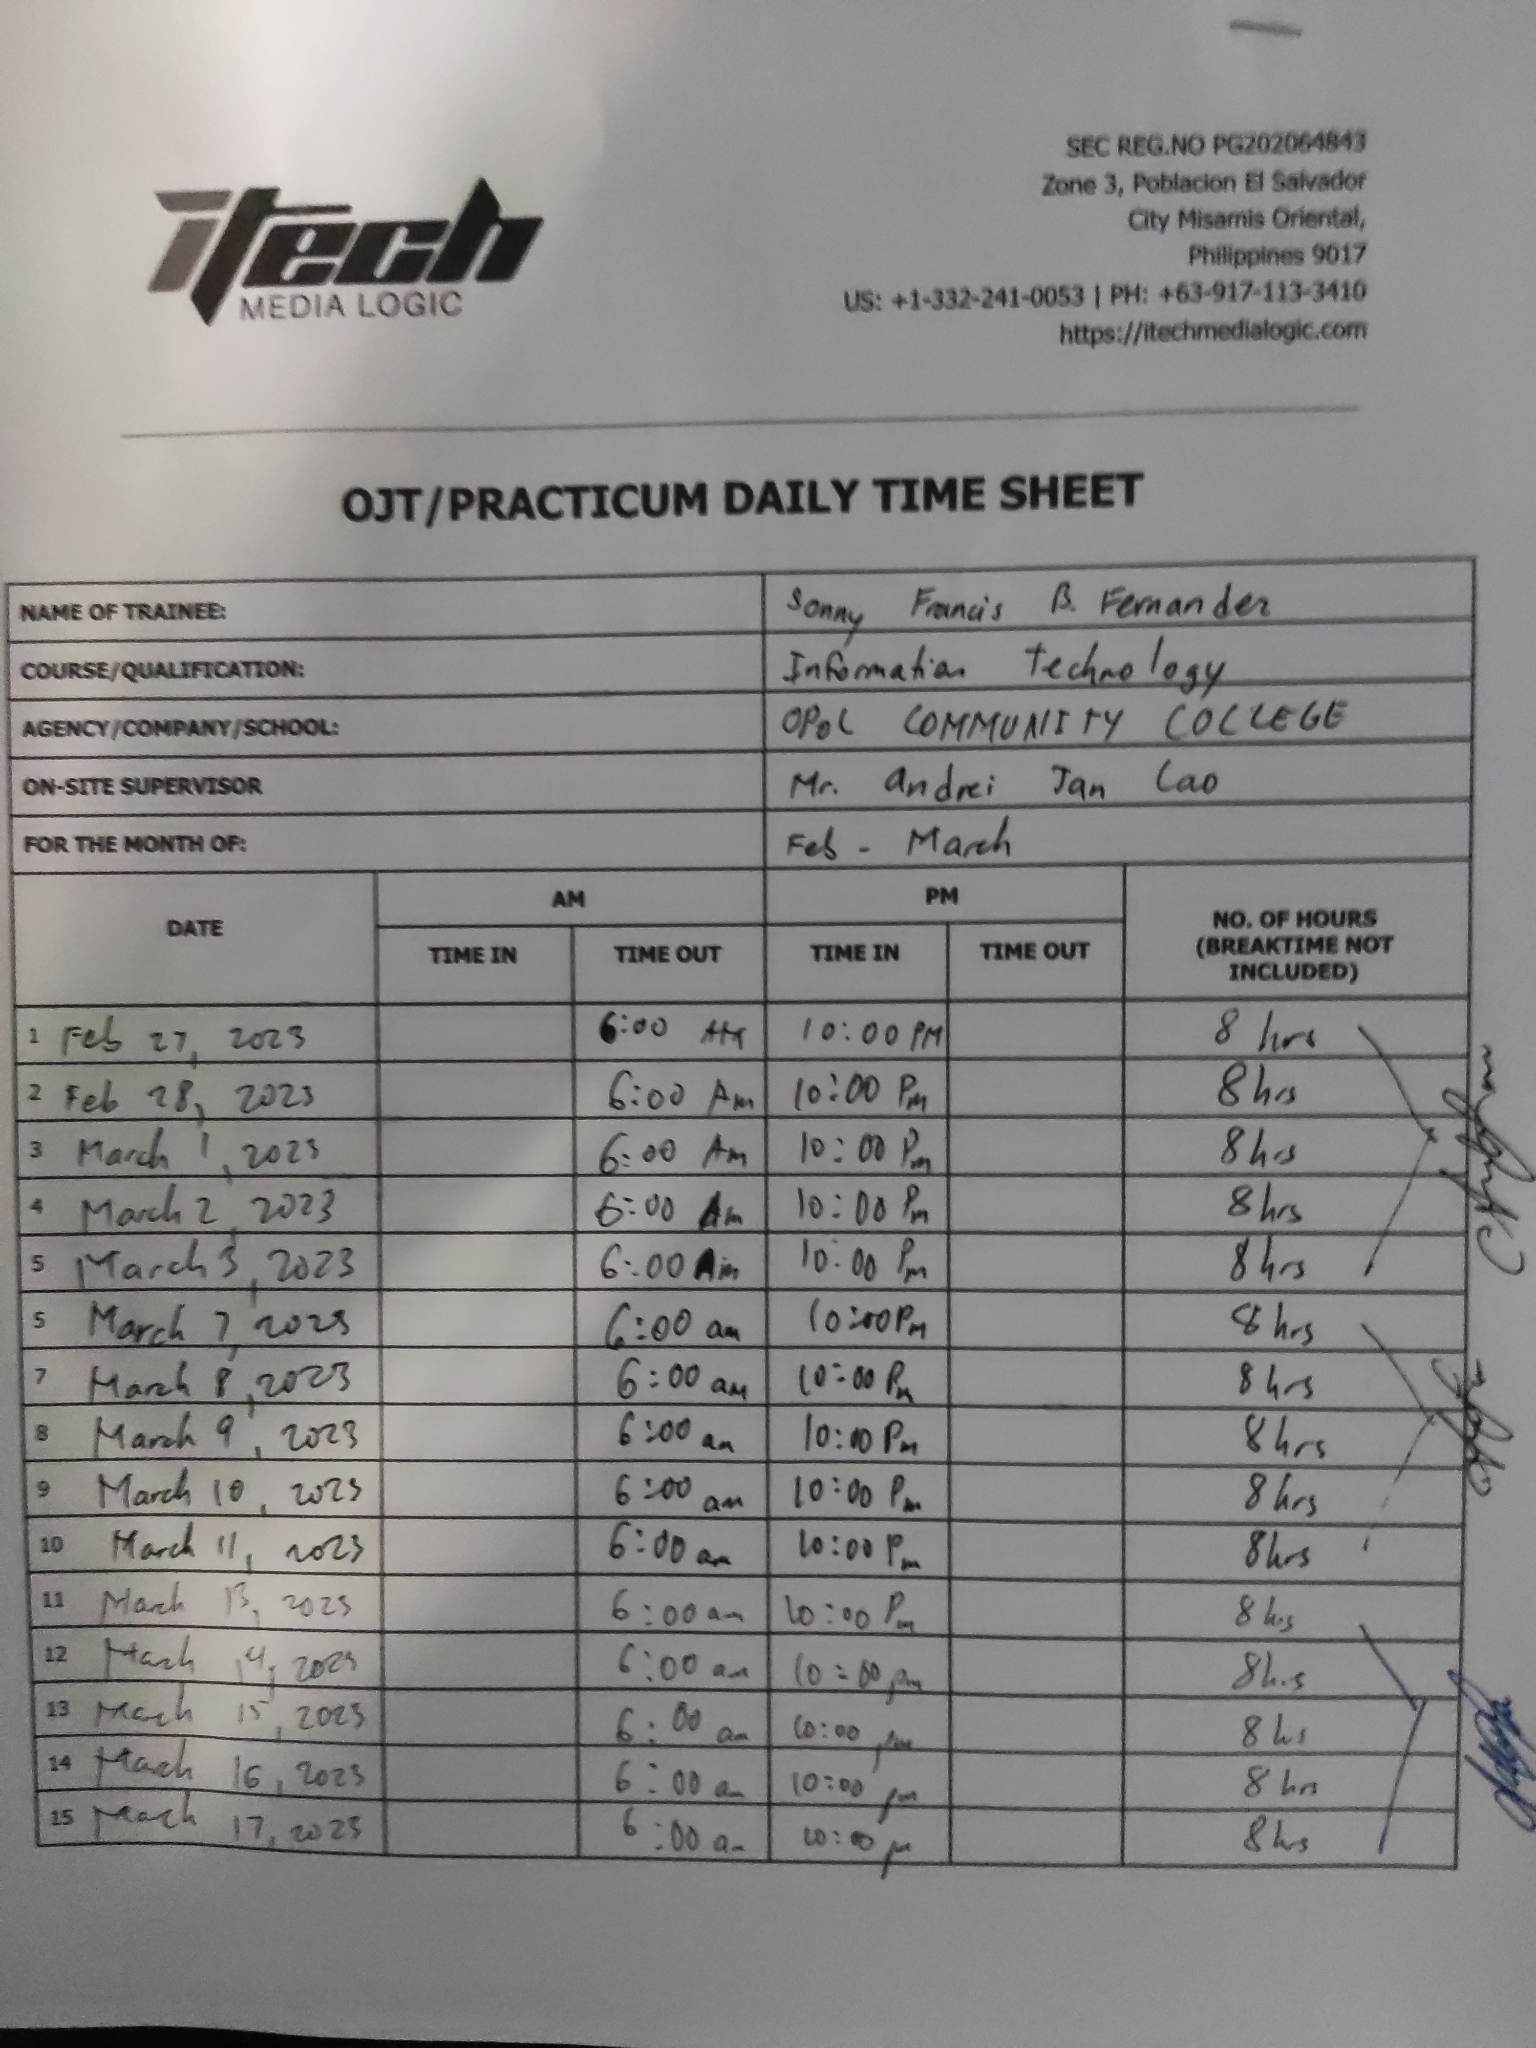 SEC REG.NO PG202064843
Zone 3, Poblacion El Salvador
City Misamis Oriental,
Philippines 9017
US: +1-332-241-0053 | PH: +63-917-113-3410
https://itechmedialogic.com
iTech
MEDIA LOGIC
OJT/PRACTICUM DAILY TIME SHEET
NAME OF TRAINEE: Sonny Francis B. Fernandez
COURSE/QUALIFICATION: Information Technology
AGENCY/COMPANY/SCHOOL: OPOL COMMUNITY COLLEGE
ON-SITE SUPERVISOR Mr. Andrei Jan Cao
FOR THE MONTH OF: Feb - March
DATE AM PM NO. OF HOURS (BREAKTIME NOT INCLUDED)
TIME IN TIME OUT TIME IN TIME OUT
1 Feb 27, 2023 6:00 AM 10:00 PM 8 hrs
2 Feb 28, 2023 6:00 Am 10:00 Pm 8 hrs
3 March 1, 2023 6:00 Am 10:00 Pm 8 hrs
4 March 2, 2023 6:00 Am 10:00 Pm 8 hrs
5 March 3, 2023 6:00 Am 10:00 Pm 8 hrs
5 March 7, 2023 6:00 am 10:00 Pm 8 hrs
7 March 8, 2023 6:00 am 10:00 Pm 8 hrs
8 March 9, 2023 6:00 am 10:00 Pm 8 hrs
9 March 10, 2023 6:00 am 10:00 Pm 8 hrs
10 March 11, 2023 6:00 am 10:00 Pm 8 hrs
11 March 13, 2023 6:00 am 10:00 Pm 8 hrs
12 March 14, 2023 6:00 am 10:00 pm 8 hrs
13 March 15, 2023 6:00 am 10:00 pm 8 hrs
14 March 16, 2023 6:00 am 10:00 pm 8 hrs
15 March 17, 2023 6:00 am 10:00 pm 8 hrs